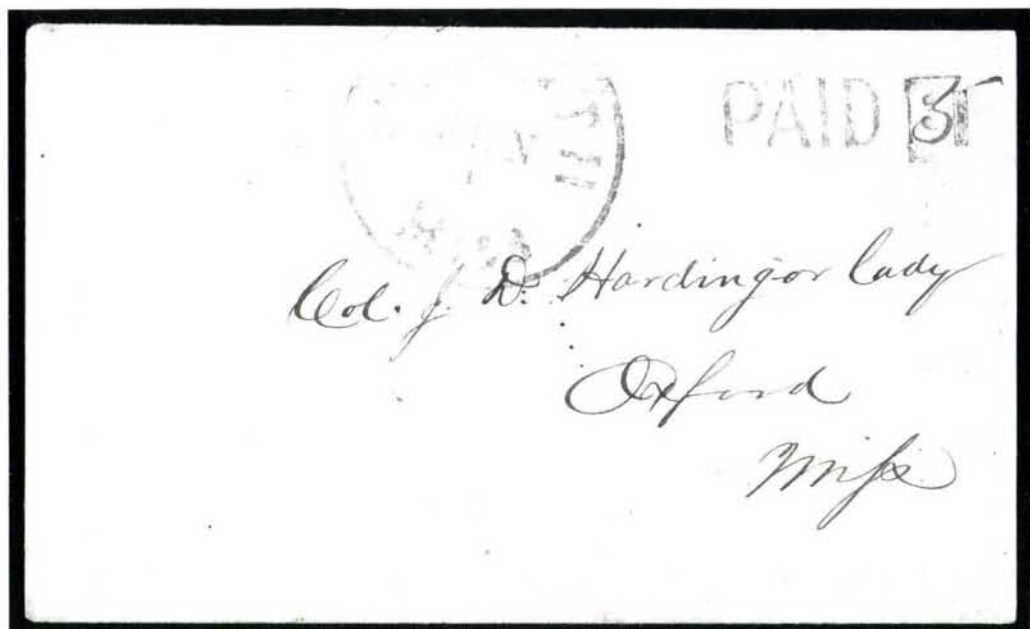 PAID 5
Col. J. D. Harding or Lady
Oxford
Miss